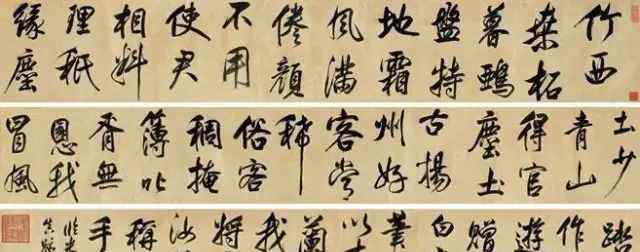 竹西
桑柘
暮鵶
盤特
地霜
風滿
倦顏
不用
使君
相料
理秪
緣塵
土少
青山
得官
塵土
古揚
州好
客嘗
稀
俗客
稠掩
簿叱
胥無
恩我
冒風
踏
作
遊
贈
白
以
蘭
我
將
汝
稱
手